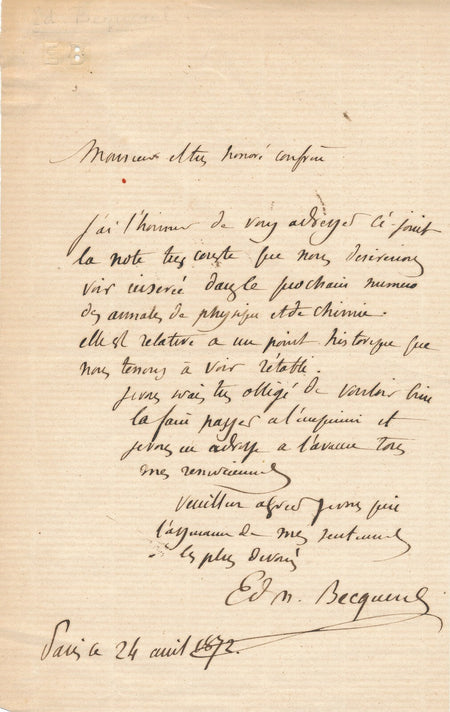 Ed. Becquerel
E B
Monsieur et très honoré confrère
J'ai l'honneur de vous adresser ci joint
la note très courte que nous désirerions
voir inserée dans le prochain numero
des annales de physique et de chimie.
elle est relative a un point historique que
nous tenons à voir rétabli.
je vous serais très obligé de vouloir bien
la faire passer a l'imprimerie et
je vous en adresse a l'avance tous
mes remerciements
Veuillez agréer je vous prie
l'assurance de mes sentiments
les plus dévoués
Edm. Becquerel
Paris ce 24 avril 1872.